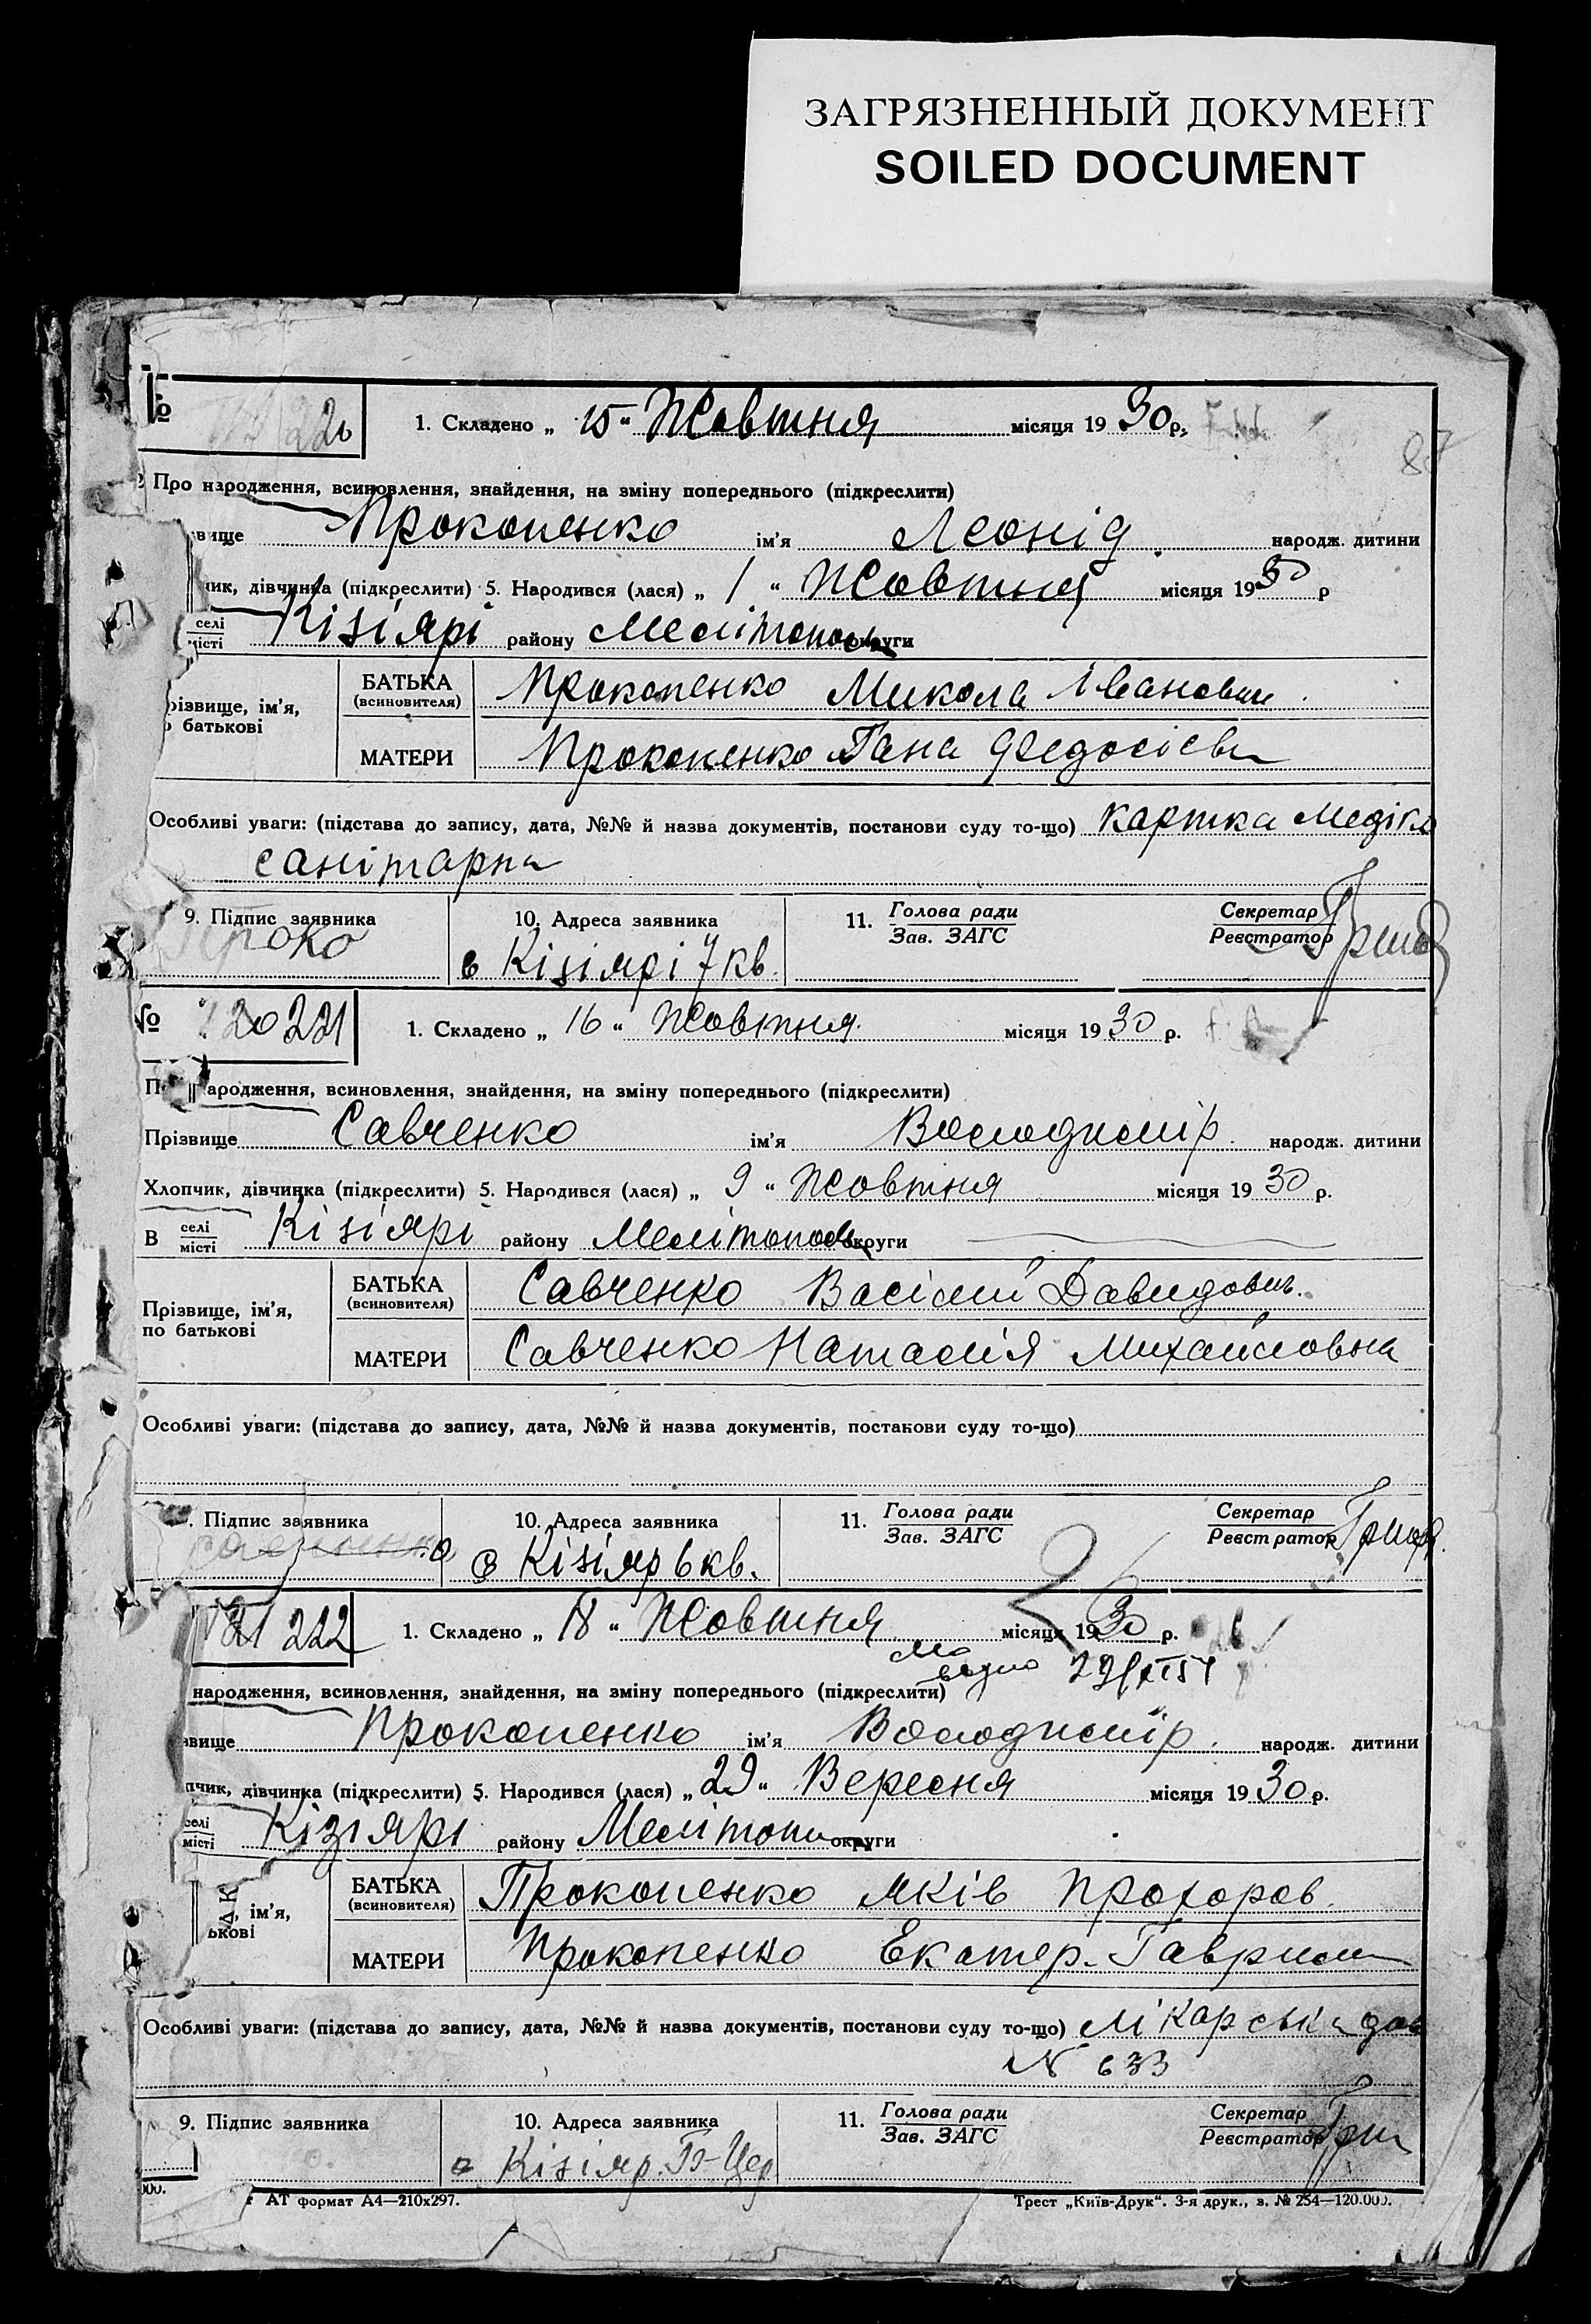 ЗАГРЯЗНЕННЫЙ ДОКУМЕНТ
SOILED DOCUMENT
№ 220 1. Складено „ 15 “ Жовтня місяця 1930 р.
87
Про народження, всиновлення, знайдення, на зміну попереднього (підкреслити)
вище Прокопенко ім'я Леонід народж. дитини
чик, дівчинка (підкреслити) 5. Народився (лася) „ 1 “ Жовтня місяця 1930 р
селі
місті Кізіярі району Мелітополь округи
різвище, ім'я,
батькові
БАТЬКА
(всиновителя) Прокопенко Микола Іванович
МАТЕРИ Прокопенко Гана Федосієв
Особливі уваги: (підстава до запису, дата, №№ й назва документів, постанови суду то-що) картка Медіко
санітарна
9. Підпис заявника 10. Адреса заявника 11. Голова ради
Зав. ЗАГС Секретар
Реєстратор
Проко в Кізіярі 7 кв.
№ 221 1. Складено „ 16 “ Жовтня місяця 1930 р.
ародження, всиновлення, знайдення, на зміну попереднього (підкреслити)
Прізвище Савченко ім'я Володимір народж. дитини
Хлопчик, дівчинка (підкреслити) 5. Народився (лася) „ 9 “ Жовтня місяця 1930 р.
В селі
місті Кізіярі району Мелітополь округи
Прізвище, ім'я,
по батькові
БАТЬКА
(всиновителя) Савченко Васілий Давидович.
МАТЕРИ Савченко Наталія Михайловна
Особливі уваги: (підстава до запису, дата, №№ й назва документів, постанови суду то-що)
Підпис заявника 10. Адреса заявника 11. Голова ради
Зав. ЗАГС Секретар
Реєстратор
с Кізіяр 6 кв.
221 222 1. Складено „ 18 “ Жовтня місяця 1930 р.
народження, всиновлення, знайдення, на зміну попереднього (підкреслити)
вище Прокопенко ім'я Володимір. народж. дитини
пчик, дівчинка (підкреслити) 5. Народився (лася) „ 29 “ Вересня місяця 1930 р.
селі
місті Кізіярі району Мелітопи округи
ім'я,
ькові
БАТЬКА
(всиновителя) Прокопенко Яків Прохоров.
МАТЕРИ Прокопенко Екатер. Гаврил
Особливі уваги: (підстава до запису, дата, №№ й назва документів, постанови суду то-що) Лікарська дов
№ 633
9. Підпис заявника 10. Адреса заявника 11. Голова ради
Зав. ЗАГС Секретар
Реєстратор
Кізіяр.
АТ формат А4—210х297. Трест „Київ-Друк“. 3-я друк., з. № 254—120.000.